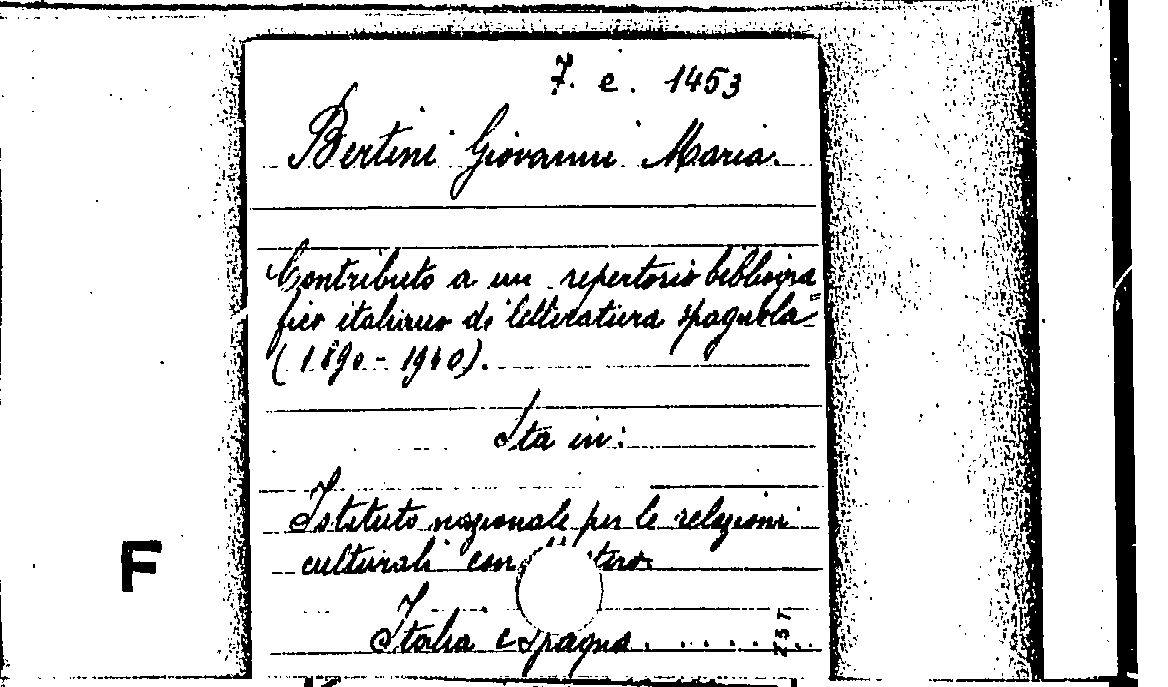 7. e. 1453
Bertini Giovanni Maria.
Contributo a un repertorio bibliogra
fico italiano di letteratura spagnola
(1890-1940).
Sta in:
Istituto nazionale per le relazioni
culturali con
F
Italia e Spagna . . . . . .
257